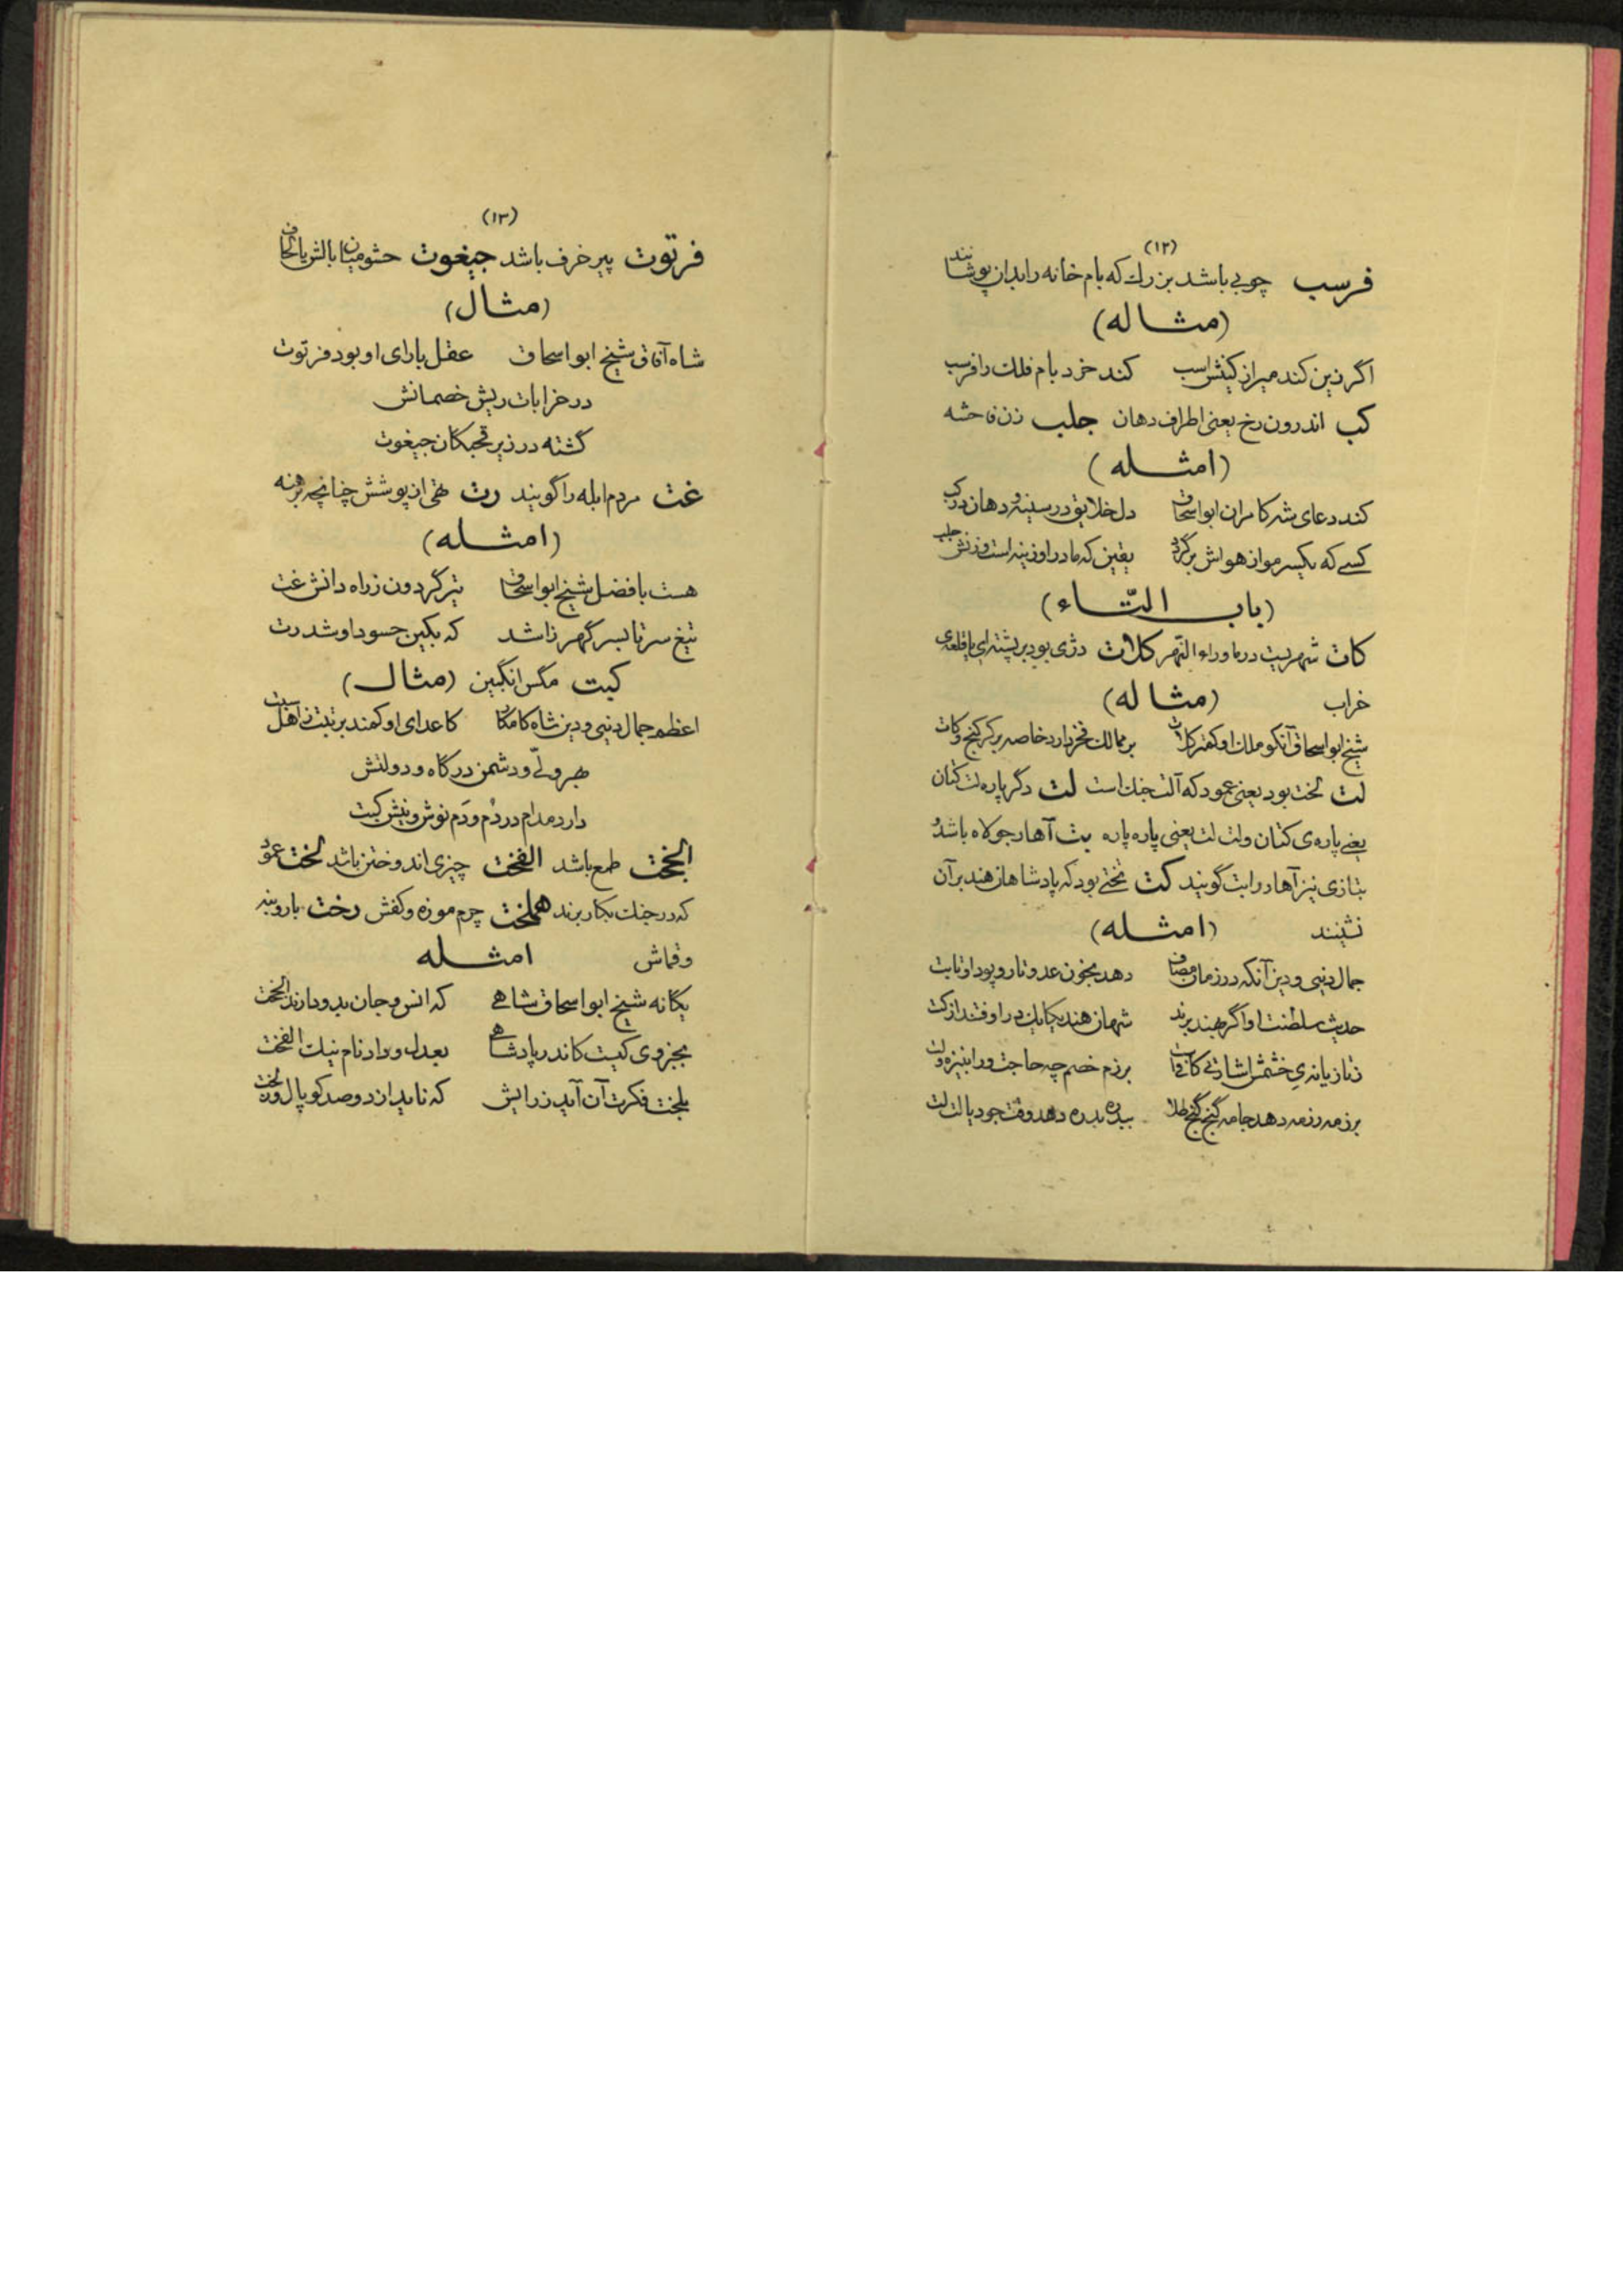 (۱۲)
فرسب چوبی باشد بزرك که بام خانه را بدان پوشانند
(مثاله)
اگر زین کند میر از کینش اسب کند خرد بام فلك را فرسب
کب اندرون رخ یعنی اطراف دهان جلب زن فاحشه
(امثله)
کند دعای شه کامران ابواسحاق دل خلایق در سینه و دهان در کب
کسی که یکسر مو از هواش برگردد یقین که مادر او زینه است و زنش جلب
(باب التّاء)
کات شهریست در ماوراء النهر کلات دژی بود بر پشته‌ای یا قلعه‌ی
خراب (مثاله)
شیخ ابواسحاق آنکو ملك او کمتر کلات بر ممالك فخر دارد خاصه بر کرکنج و کات
لت لخت بود یعنی عمود که آلت جنك است لت دگر پاره لت کتان
یعنی پاره‌ی کتان ولت لت یعنی پاره پاره بت آهار جولاه باشد و
بتازی نیز آهار را بت گویند کت تختی بود که پادشاهان هند بر آن
نشینند (امثله)
جمال دنیی و دین آنکه در زمان مصاف دهد بخون عدو تار و پود او تابت
حدیث سلطنت او اگر بهند برند شهان هند یکایك در اوفتند از کت
ز تازیانه‌ی خشمش اشارتی کافیست برزم خصم چه حاجت ورا بنیزه ولت
برزمه رزمه دهد جامه گنج گنج طلا ببدره بدره دهد وقت جود یا لت لت
(۱۳)
فرتوت پیر خرف باشد جبغوت حشو میان بالش یا لحاف
(مثال)
شاه آفاق شیخ ابواسحاق عقل با رای او بود فرتوت
در خرابات ریش خصمانش
گشته در زیر قحبگان جبغوت
غت مردم ابله را گویند رت تهی از پوشش چنانچه برهنه
(امثله)
هست با فضل شیخ ابواسحاق تیر گردون ز راه دانش غت
تیغ سر تا بسر گهر زا شد که بکین حسود او شد رت
کبت مگس انگبین (مثال)
اعظم جمال دنیی و دین شاه کامکار کاعدای او کمند بر تبت ز اهل سبت
بهر ولیّ و دشمن درگاه و دولتش
دارد مدام در دُم و دَم نوش و نیش کبت
الجخت طمع باشد الفخت چیزی اندوختن باشد لخت عمود
که در جنك بکار برند هملخت چرم موزه و کفش رخت بار و بنه
وقماش امثله
یگانه شیخ ابواسحاق شاهی که انس و جان بدو دارند الجخت
بجز وی کیست کاندر پادشاهی بعدل و داد نام نیك الفخت
بلخت فکرت آن آید ز رایش که ناید از دو صد کوپال ولخت